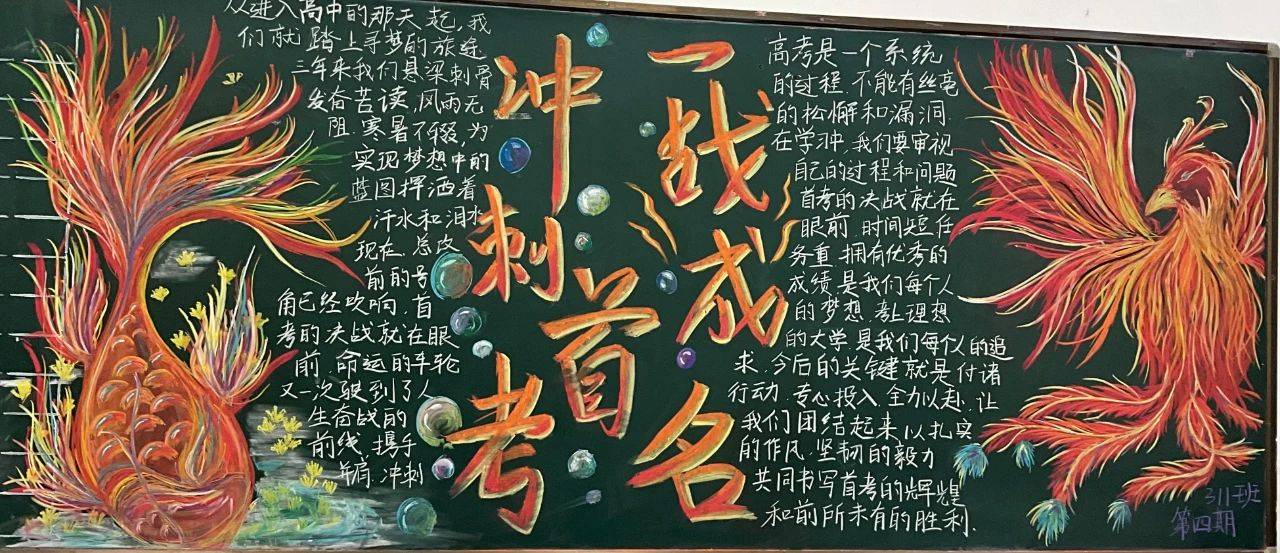 从进入高中的那天起,我
们就踏上寻梦的旅途
三年来我们悬梁刺骨
发奋苦读,风雨无
阻.寒暑不辍,为
实现梦想中的
蓝图挥洒着
汗水和泪水
现在.总攻
前的号
角已经吹响.首
考的决战就在眼
前.命运的手轮
又一次驶到了人
生奋战的
前线.携手
并肩.冲刺
冲刺首考
一战成名
高考是一个系统
的过程.不能有丝毫
的松懈和漏洞.
在学习中.我们要审视
自己的过程和问题
首考的决战就在
眼前.时间短任
务重.拥有优秀的
成绩.是我们每个人
的梦想.考上理想
的大学.是我们每个人的追
求.今后的关键就是付诸
行动.专心投入.全力以赴.让
我们团结起来以扎实
的作风.坚韧的毅力
共同书写首考的辉煌
和前所未有的胜利.
311班
第四期